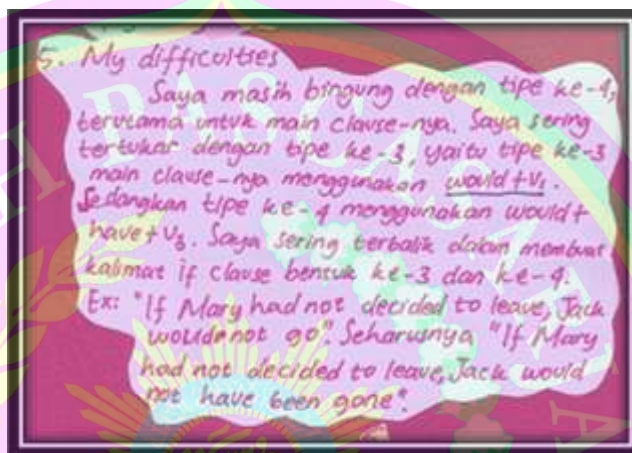 5. My difficulties
Saya masih bingung dengan tipe ke-4,
terutama untuk main clause-nya. Saya sering
tertukar dengan tipe ke-3, yaitu tipe ke-3
main clause-nya menggunakan would+V1.
Sedangkan tipe ke-4 menggunakan would+
have+V3. Saya sering terbalik dalam membuat
kalimat if clause bentuk ke-3 dan ke-4.
Ex: "If Mary had not decided to leave, Jack
would not go". Seharusnya "If Mary
had not decided to leave, Jack would
not have been gone".